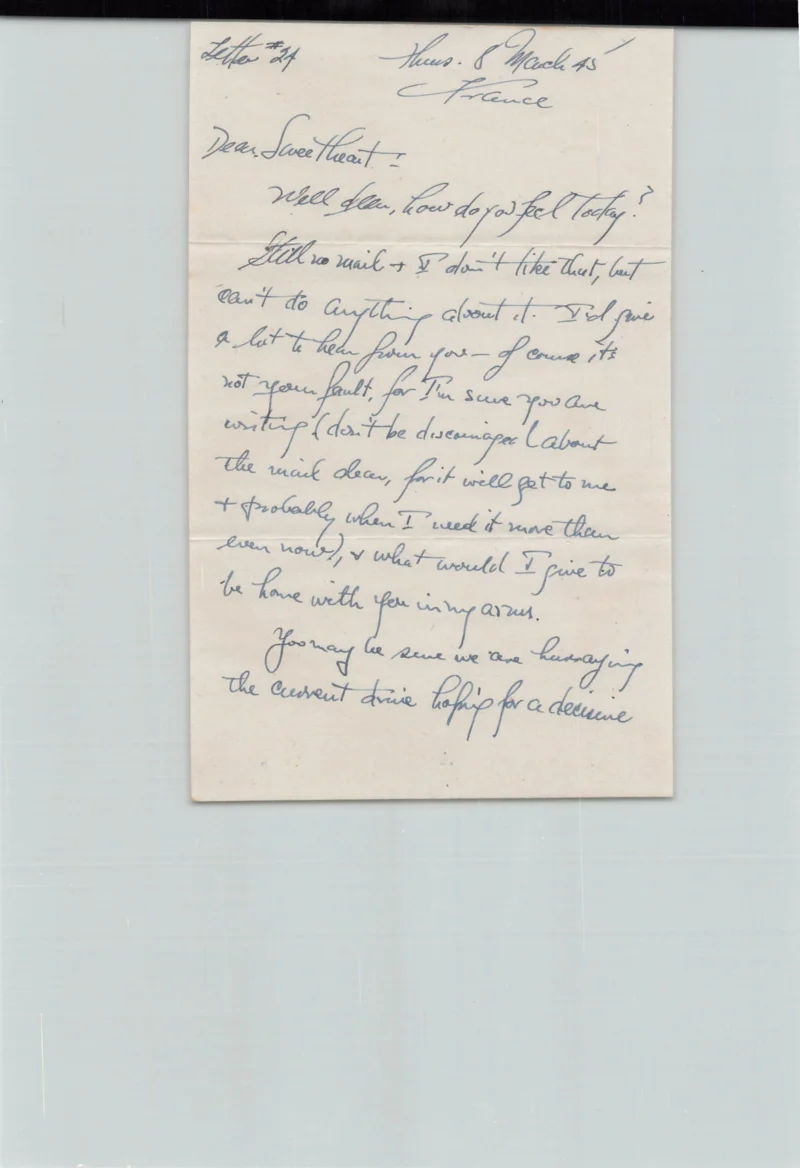 Letter #24
Thurs. 8 March 45
France
Dear Sweetheart:
Well dear, how do you feel today?
Still no mail + I don't like that, but
can't do anything about it. I'd give
a lot to hear from you – of course it's
not your fault, for I'm sure you are
writing (don't be discouraged about
the mail dear, for it will get to me
+ probably when I need it more than
even now), + what would I give to
be home with you in my arms.
You may be sure we are hurraying
the current drive hoping for a decisive